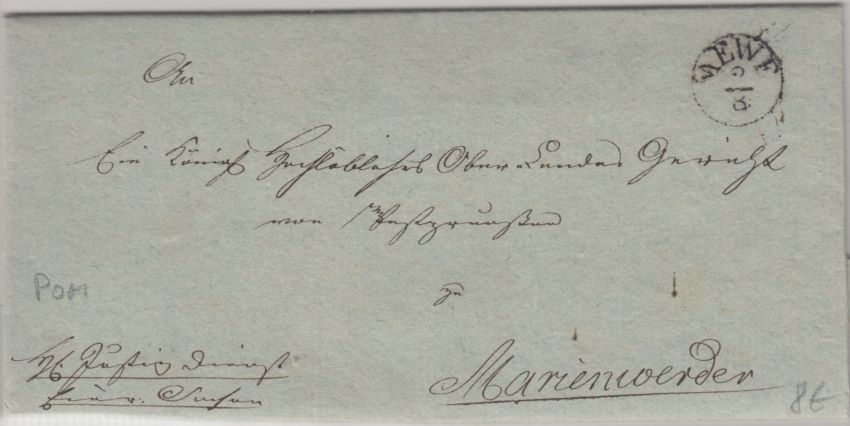 MEWE
9
8
An
Ein Königl Hochlöbliches Ober-Landes Gericht
von Westpreußen
zu
Marienwerder
Justiz Dienst
Sachen
POM
8€